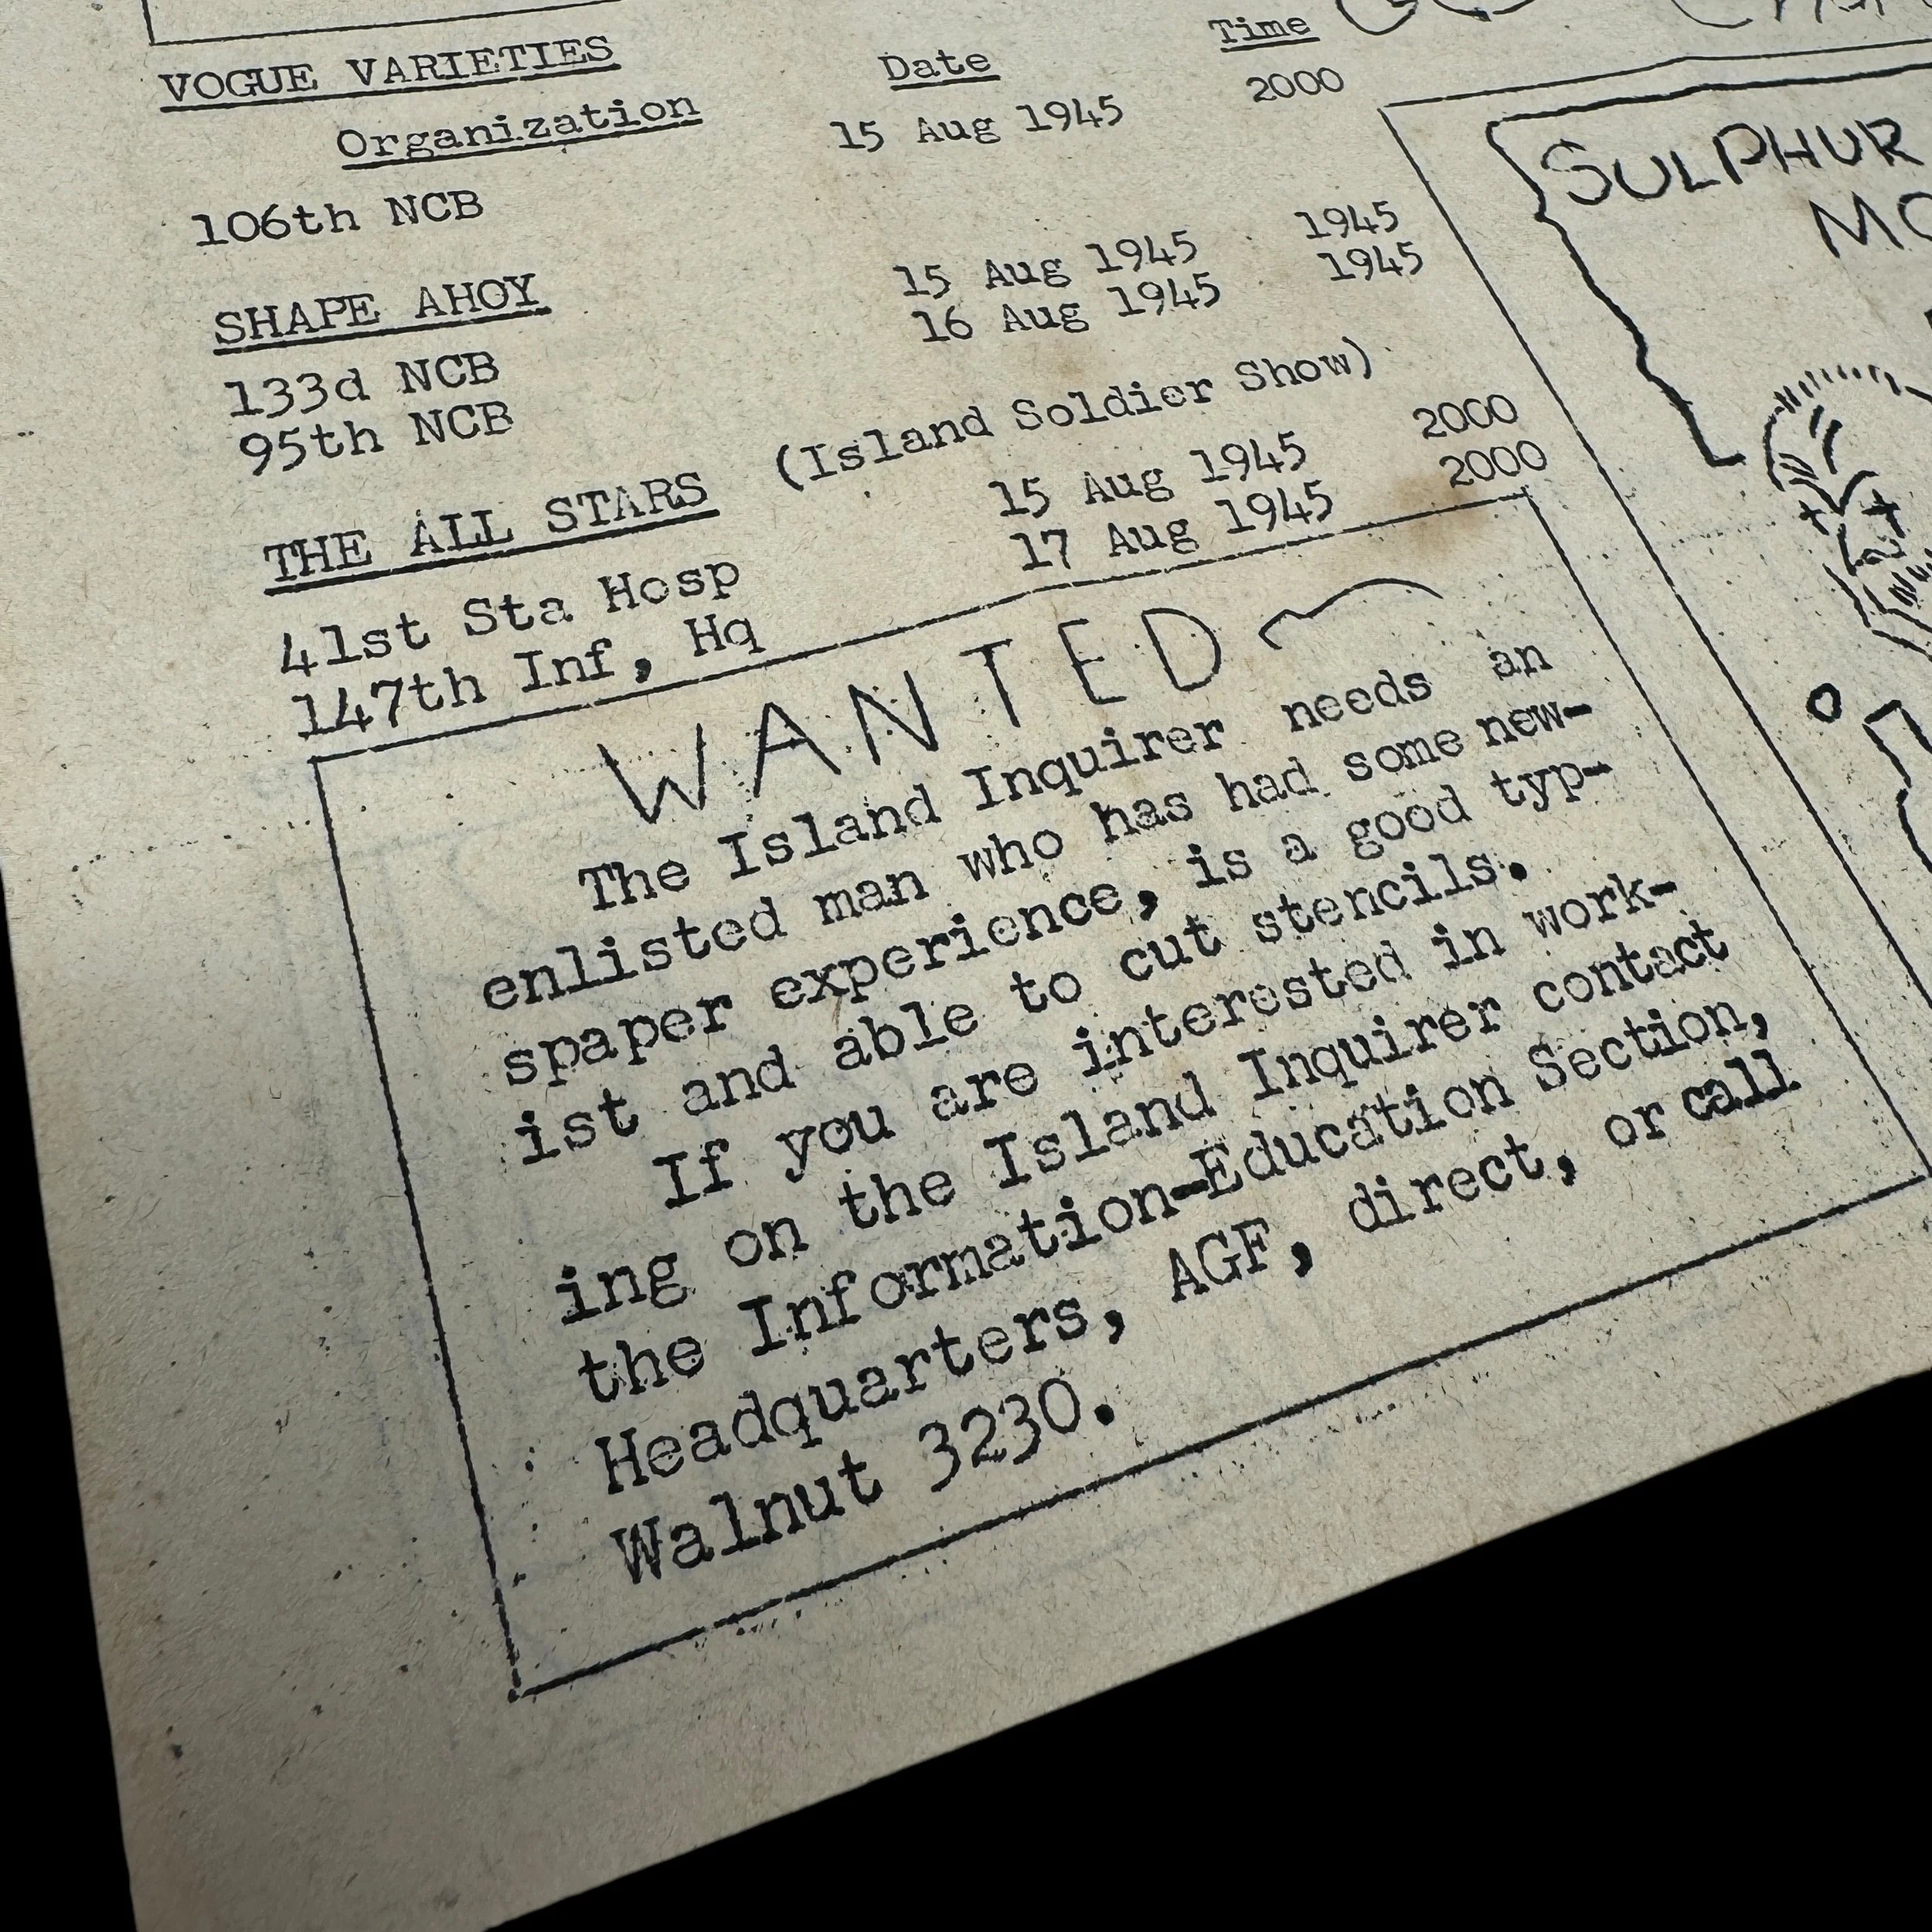 VOGUE VARIETIES
Organization Date Time
106th NCB 15 Aug 1945 2000
SHAPE AHOY
133d NCB 15 Aug 1945 1945
95th NCB 16 Aug 1945 1945
THE ALL STARS (Island Soldier Show)
41st Sta Hosp 15 Aug 1945 2000
147th Inf, Hq 17 Aug 1945 2000
WANTED
The Island Inquirer needs an
enlisted man who has had some new-
spaper experience, is a good typ-
ist and able to cut stencils.
If you are interested in work-
ing on the Island Inquirer contact
the Information-Education Section,
Headquarters, AGF, direct, or call
Walnut 3230.
SULPHUR